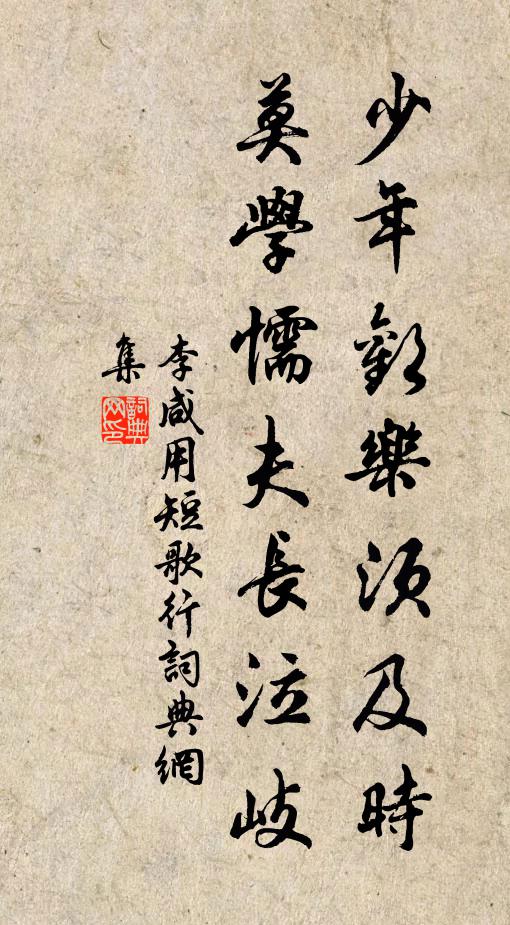 少年歡樂須及時
莫學懦夫長泣岐
李咸用短歌行詞典網
集
詞典網印